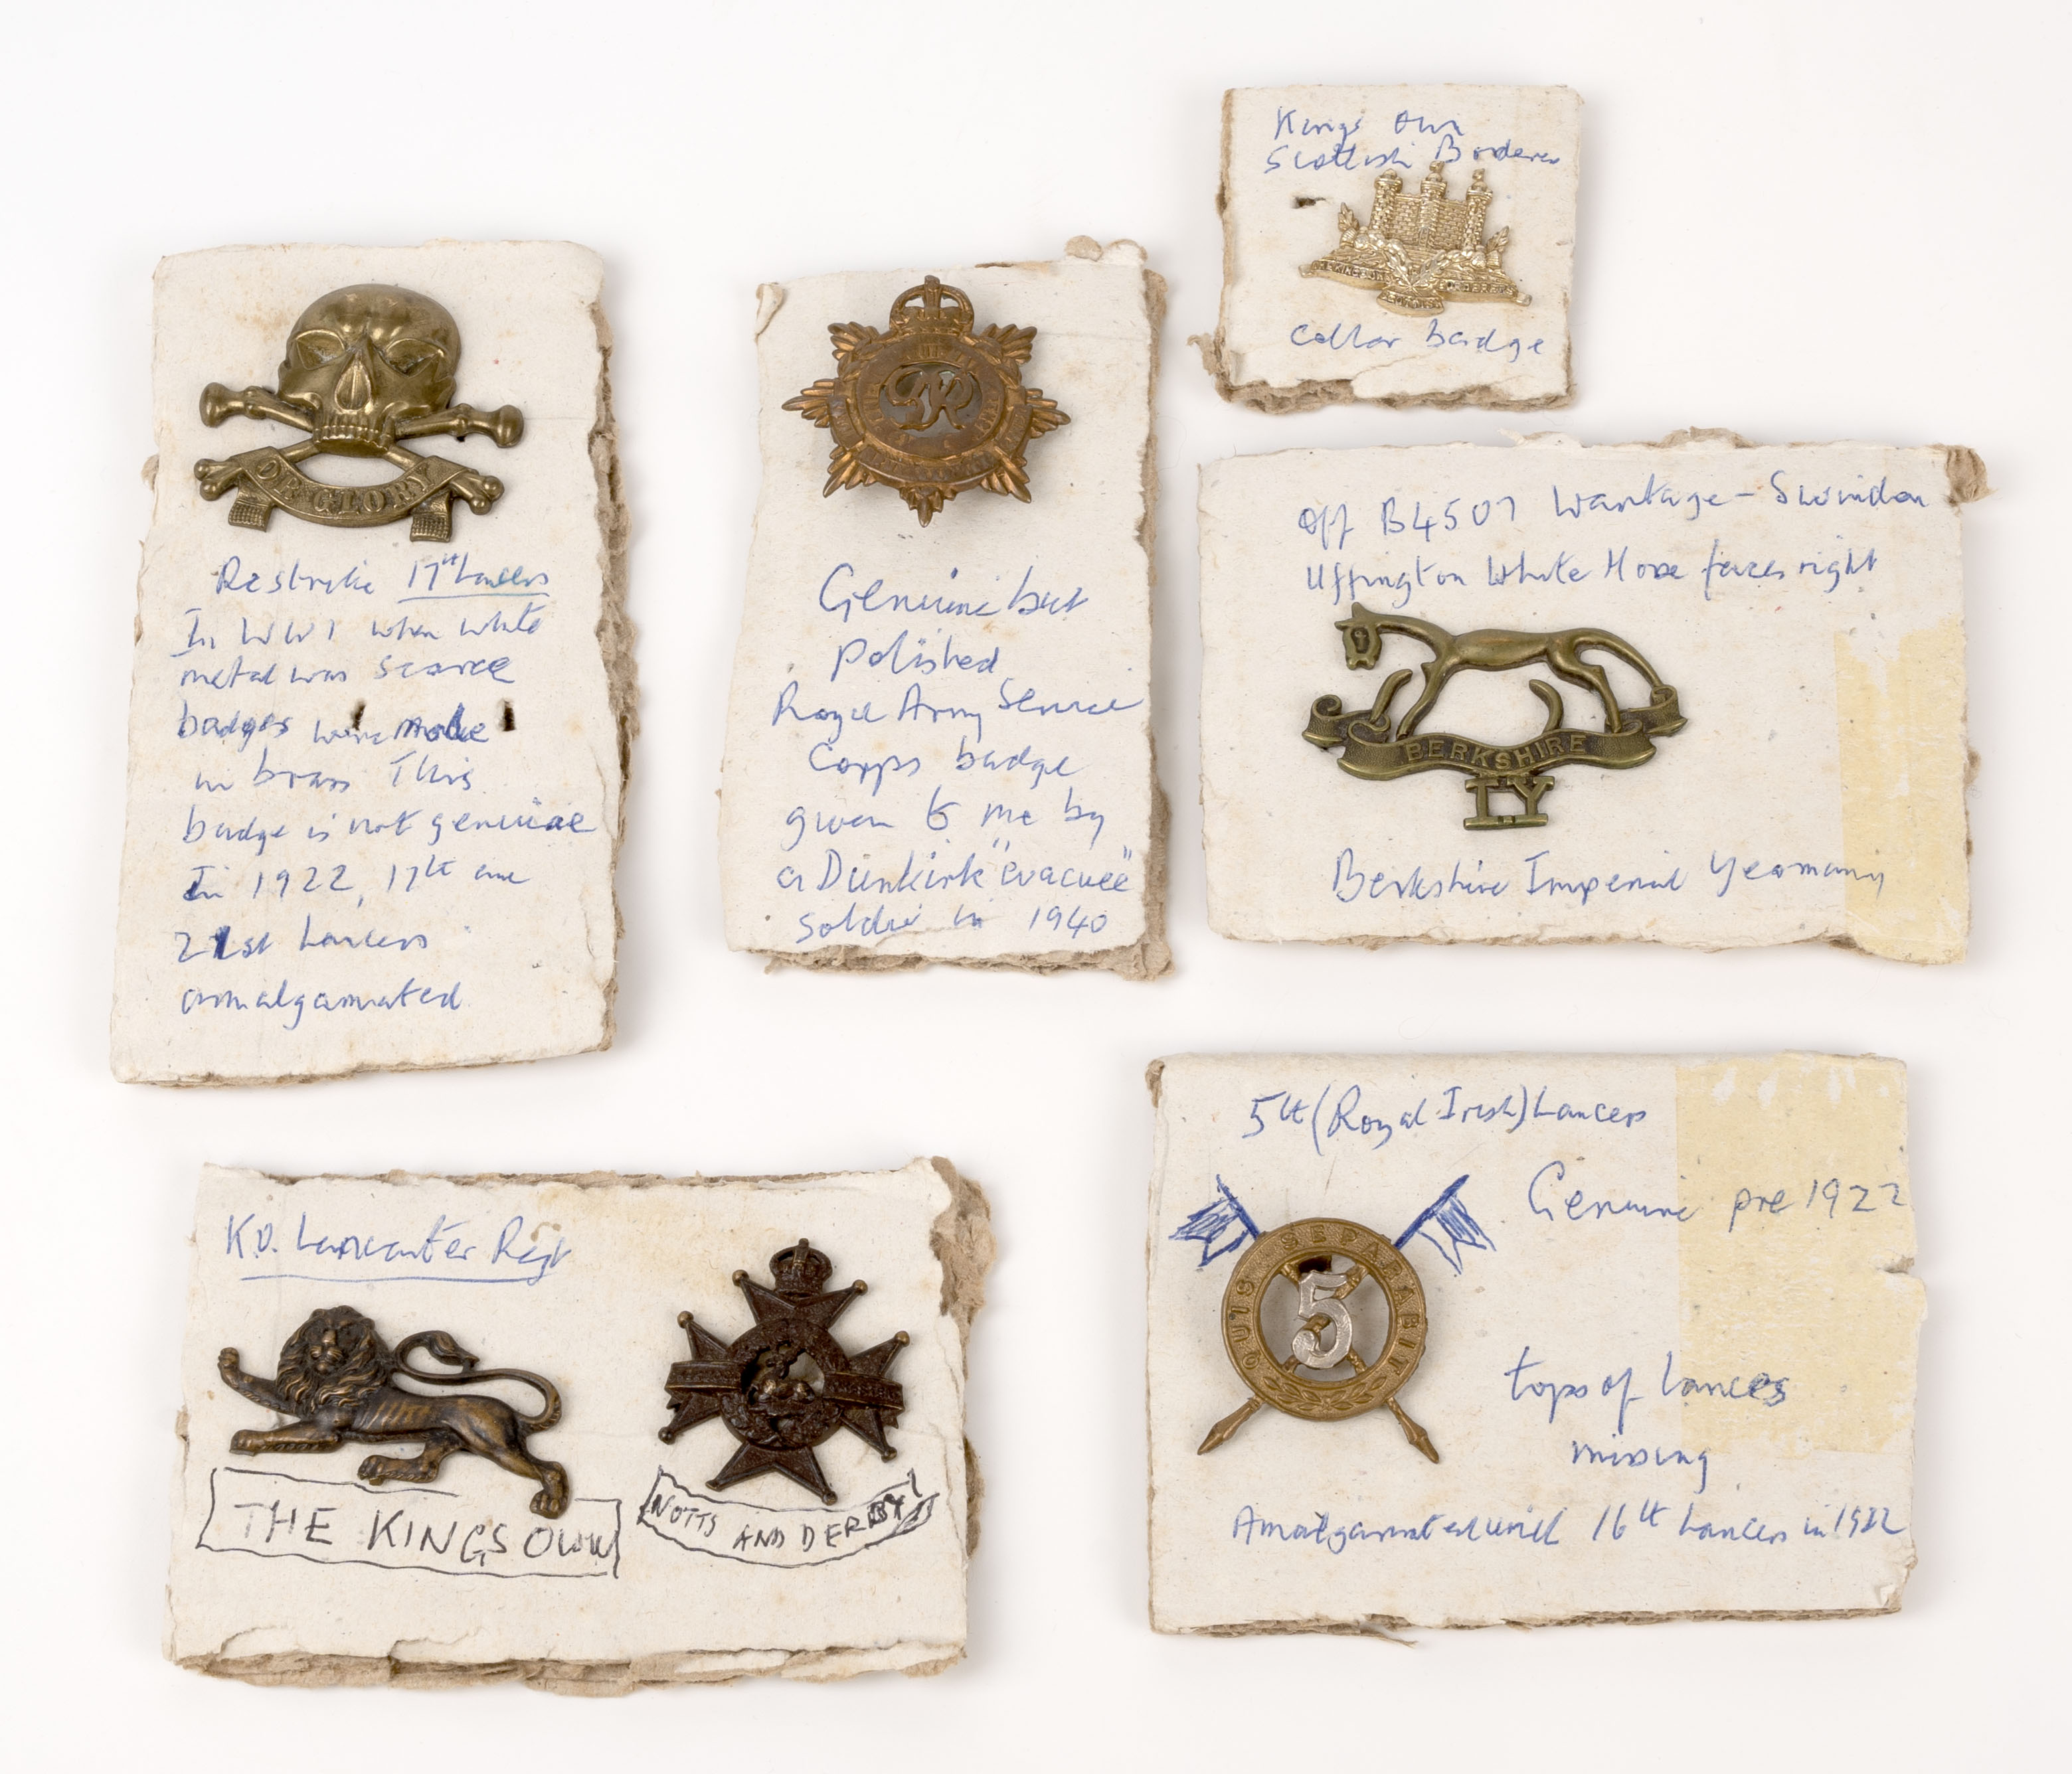 OR GLORY
Restrike 17th Lancers
In WW1 when white
metal was scarce
badges were made
in brass This
badge is not genuine
In 1922, 17th and
21st Lancers
amalgamated
GR
Genuine but
polished
Royal Army Service
Corps badge
given to me by
a Dunkirk "evacuee"
soldier in 1940
Kings Own
Scottish Borderers
BORDERERS
Collar badge
Off B4507 Wantage - Swindon
Uffington White Horse faces right
BERKSHIRE
IY
Berkshire Imperial Yeomanry
K.O. Lancaster Regt
THE KINGS OWN
NOTTS AND DERBY
5th (Royal Irish) Lancers
Genuine pre 1922
QUIS SEPARABIT
5
tops of lances
missing
Amalgamated with 16th Lancers in 1922